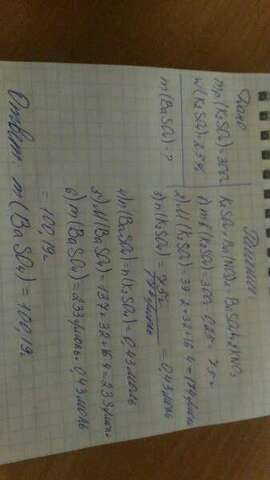 Дано
mр(K₂SO₄)=300г
w(K₂SO₄)=25%
m(BaSO₄)-?
Решение
K₂SO₄+Ba(NO₃)₂=BaSO₄↓+2KNO₃
1) m(K₂SO₄)=300·0,25=75г
2) M(K₂SO₄)=39·2+32+16·4=174г/моль
3) n(K₂SO₄)=75г/174г/моль=0,43моль
4) n(BaSO₄)=n(K₂SO₄)=0,43моль
5) M(BaSO₄)=137+32+16·4=233г/моль
6) m(BaSO₄)=233г/моль·0,43моль
=100,19г.
Ответ: m(BaSO₄)=100,19г.